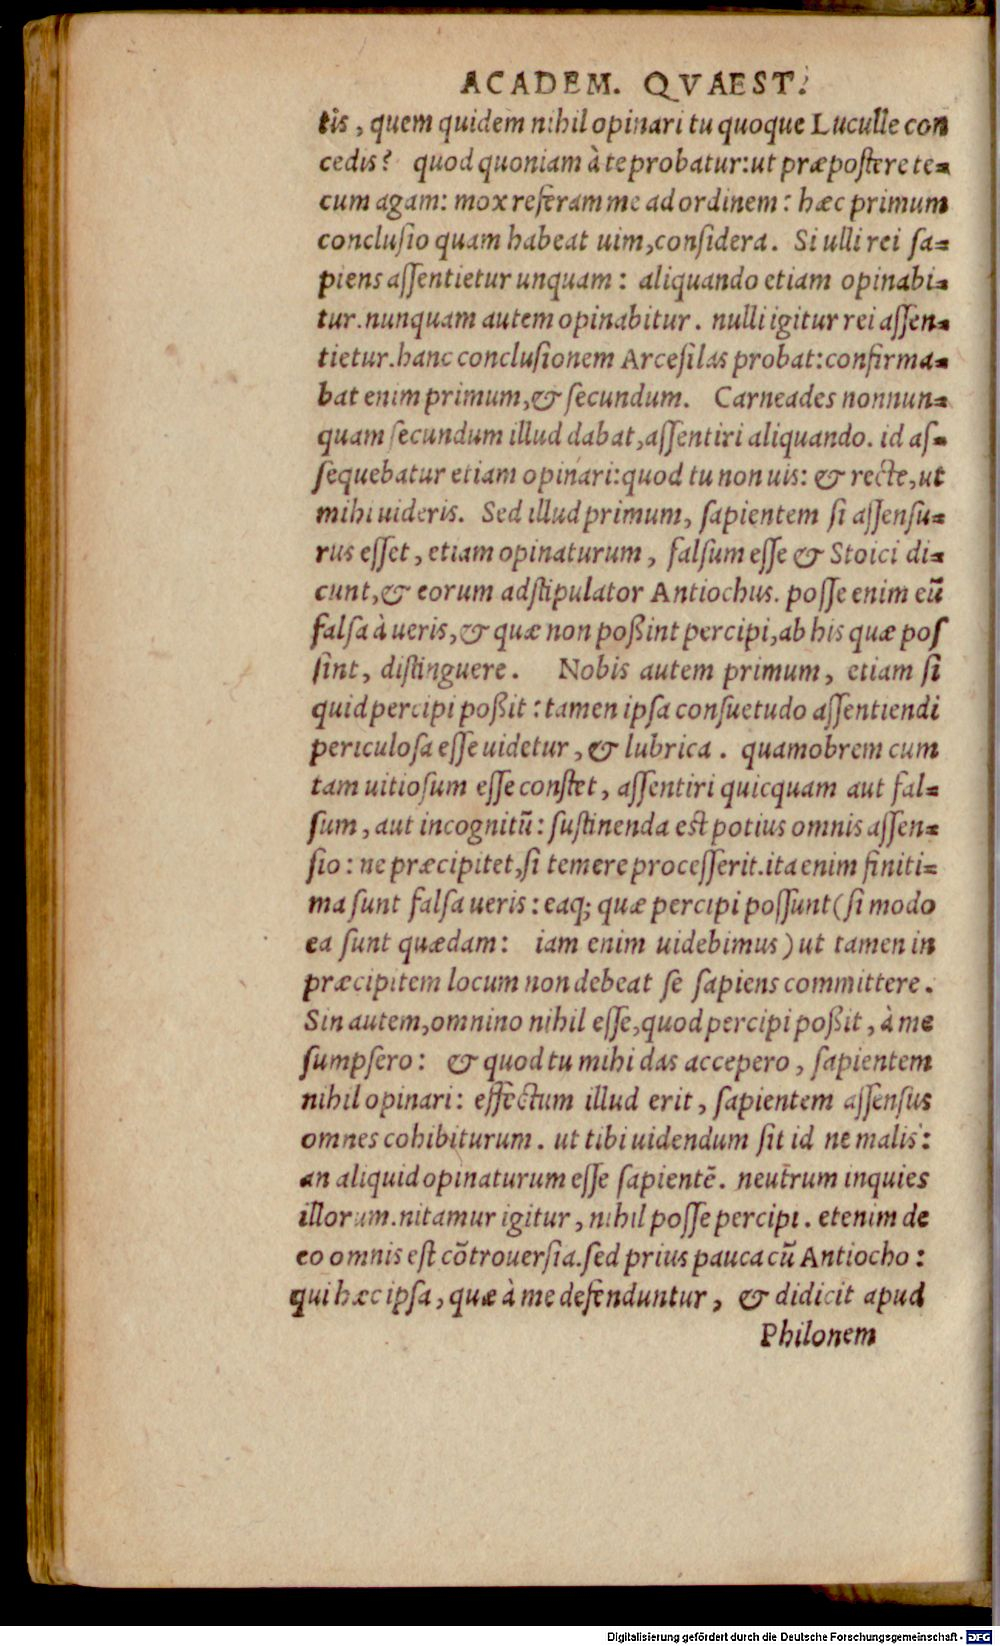 ACADEM. QVAEST.
tis, quem quidem nihil opinari tu quoque Luculle con
cedis? quod quoniam à te probatur: ut præpostere te-
cum agam: mox referam me ad ordinem: hæc primum
conclusio quam habeat uim, considera. Si ulli rei sa-
piens assentietur unquam: aliquando etiam opinabi-
tur. nunquam autem opinabitur. nulli igitur rei assen-
tietur. hanc conclusionem Arcesilas probat: confirma-
bat enim primum, & secundum. Carneades nonnun-
quam secundum illud dabat, assentiri aliquando. id as-
sequebatur etiam opinari: quod tu non uis: & recte, ut
mihi uideris. Sed illud primum, sapientem si assensu-
rus esset, etiam opinaturum, falsum esse & Stoici di-
cunt, & eorum adstipulator Antiochus. posse enim eū
falsa à ueris, & quæ non poßint percipi, ab his quæ pos
sint, distinguere. Nobis autem primum, etiam si
quid percipi poßit: tamen ipsa consuetudo assentiendi
periculosa esse uidetur, & lubrica. quamobrem cum
tam uitiosum esse constet, assentiri quicquam aut fal-
sum, aut incognitū: sustinenda est potius omnis assen-
sio: ne præcipitet, si temere processerit. ita enim finiti-
ma sunt falsa ueris: eaq; quæ percipi possunt (si modo
ea sunt quædam: iam enim uidebimus) ut tamen in
præcipitem locum non debeat se sapiens committere.
Sin autem, omnino nihil esse, quod percipi poßit, à me
sumpsero: & quod tu mihi das accepero, sapientem
nihil opinari: effectum illud erit, sapientem assensus
omnes cohibiturum. ut tibi uidendum sit id ne malis:
an aliquid opinaturum esse sapientē. neutrum inquies
illorum. nitamur igitur, nihil posse percipi. etenim de
eo omnis est cōtrouersia. sed prius pauca cū Antiocho:
qui hæc ipsa, quæ à me defenduntur, & didicit apud
Philonem
Digitalisierung gefördert durch die Deutsche Forschungsgemeinschaft - DFG